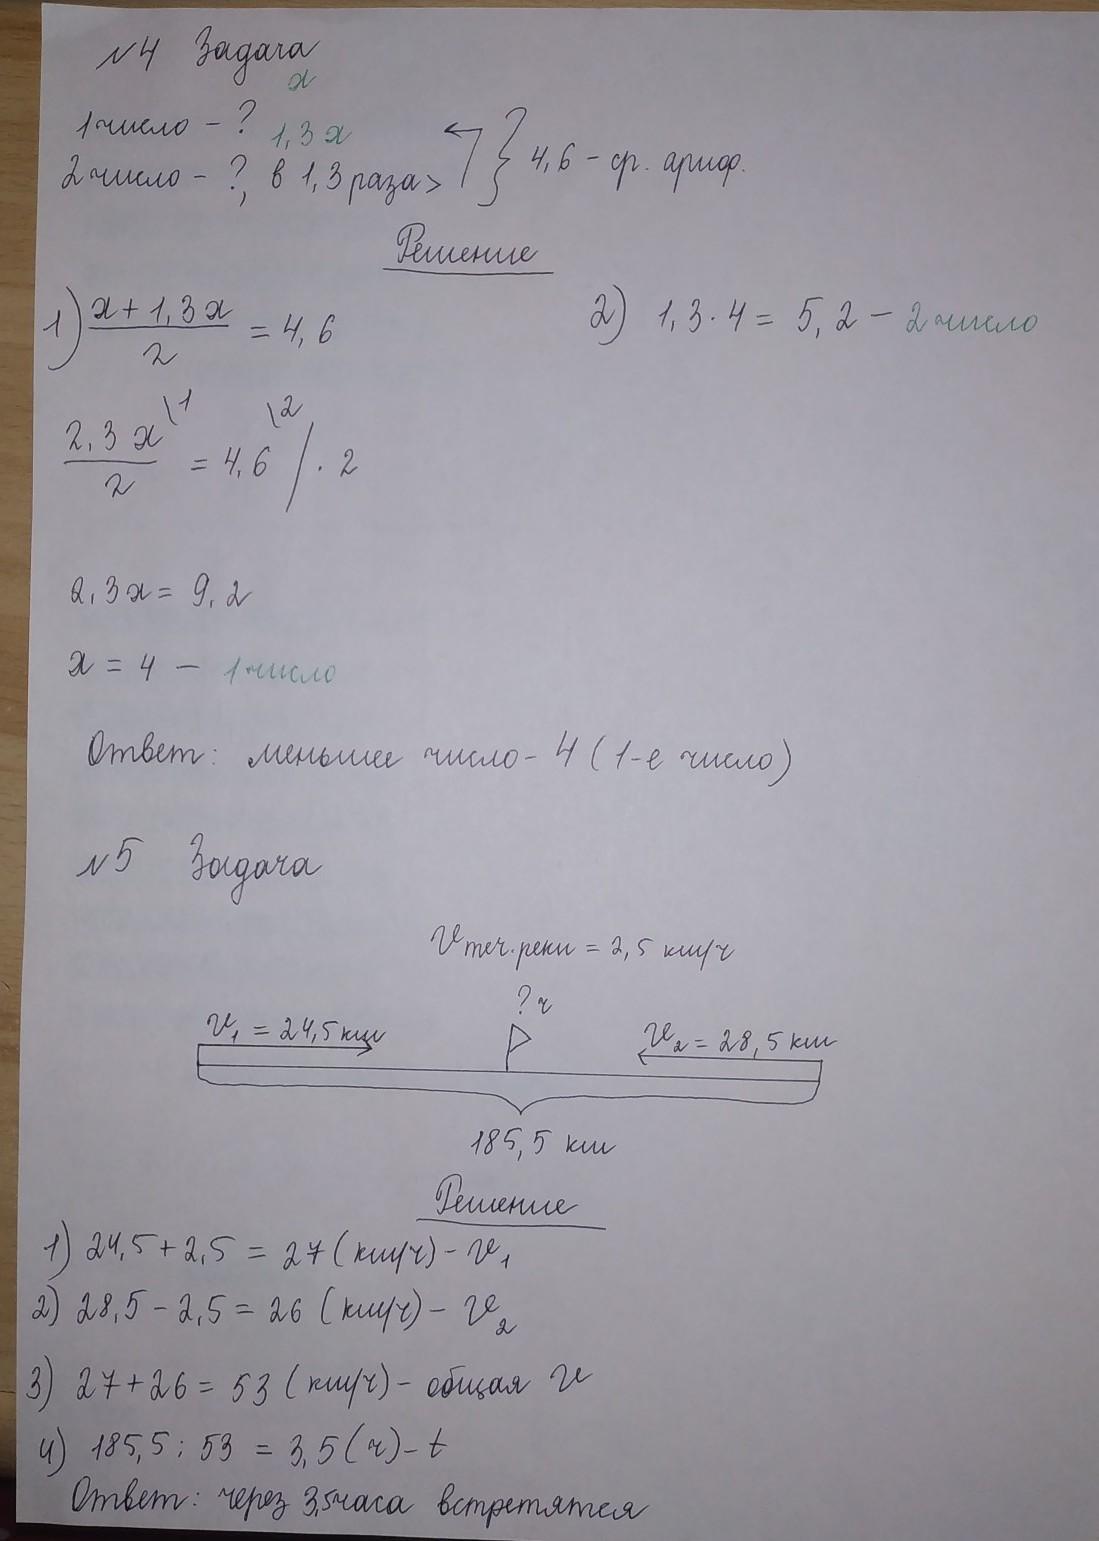 №4 Задача
x
1 число - ?
1,3x
2 число - ?, в 1,3 раза >
} 4,6 - ср. ариф.
Решение
1) (x + 1,3x)/2 = 4,6
2) 1,3 · 4 = 5,2 - 2 число
2,3x\1/2 = 4,6\2 / · 2
2,3x = 9,2
x = 4 - 1 число
Ответ: меньшее число - 4 (1-е число)
№5 Задача
v теч. реки = 2,5 км/ч
? ч
v₁ = 24,5 км
v₂ = 28,5 км
185,5 км
Решение
1) 24,5 + 2,5 = 27 (км/ч) - v₁
2) 28,5 - 2,5 = 26 (км/ч) - v₂
3) 27 + 26 = 53 (км/ч) - общая v
4) 185,5 : 53 = 3,5 (ч) - t
Ответ: через 3,5 часа встретятся